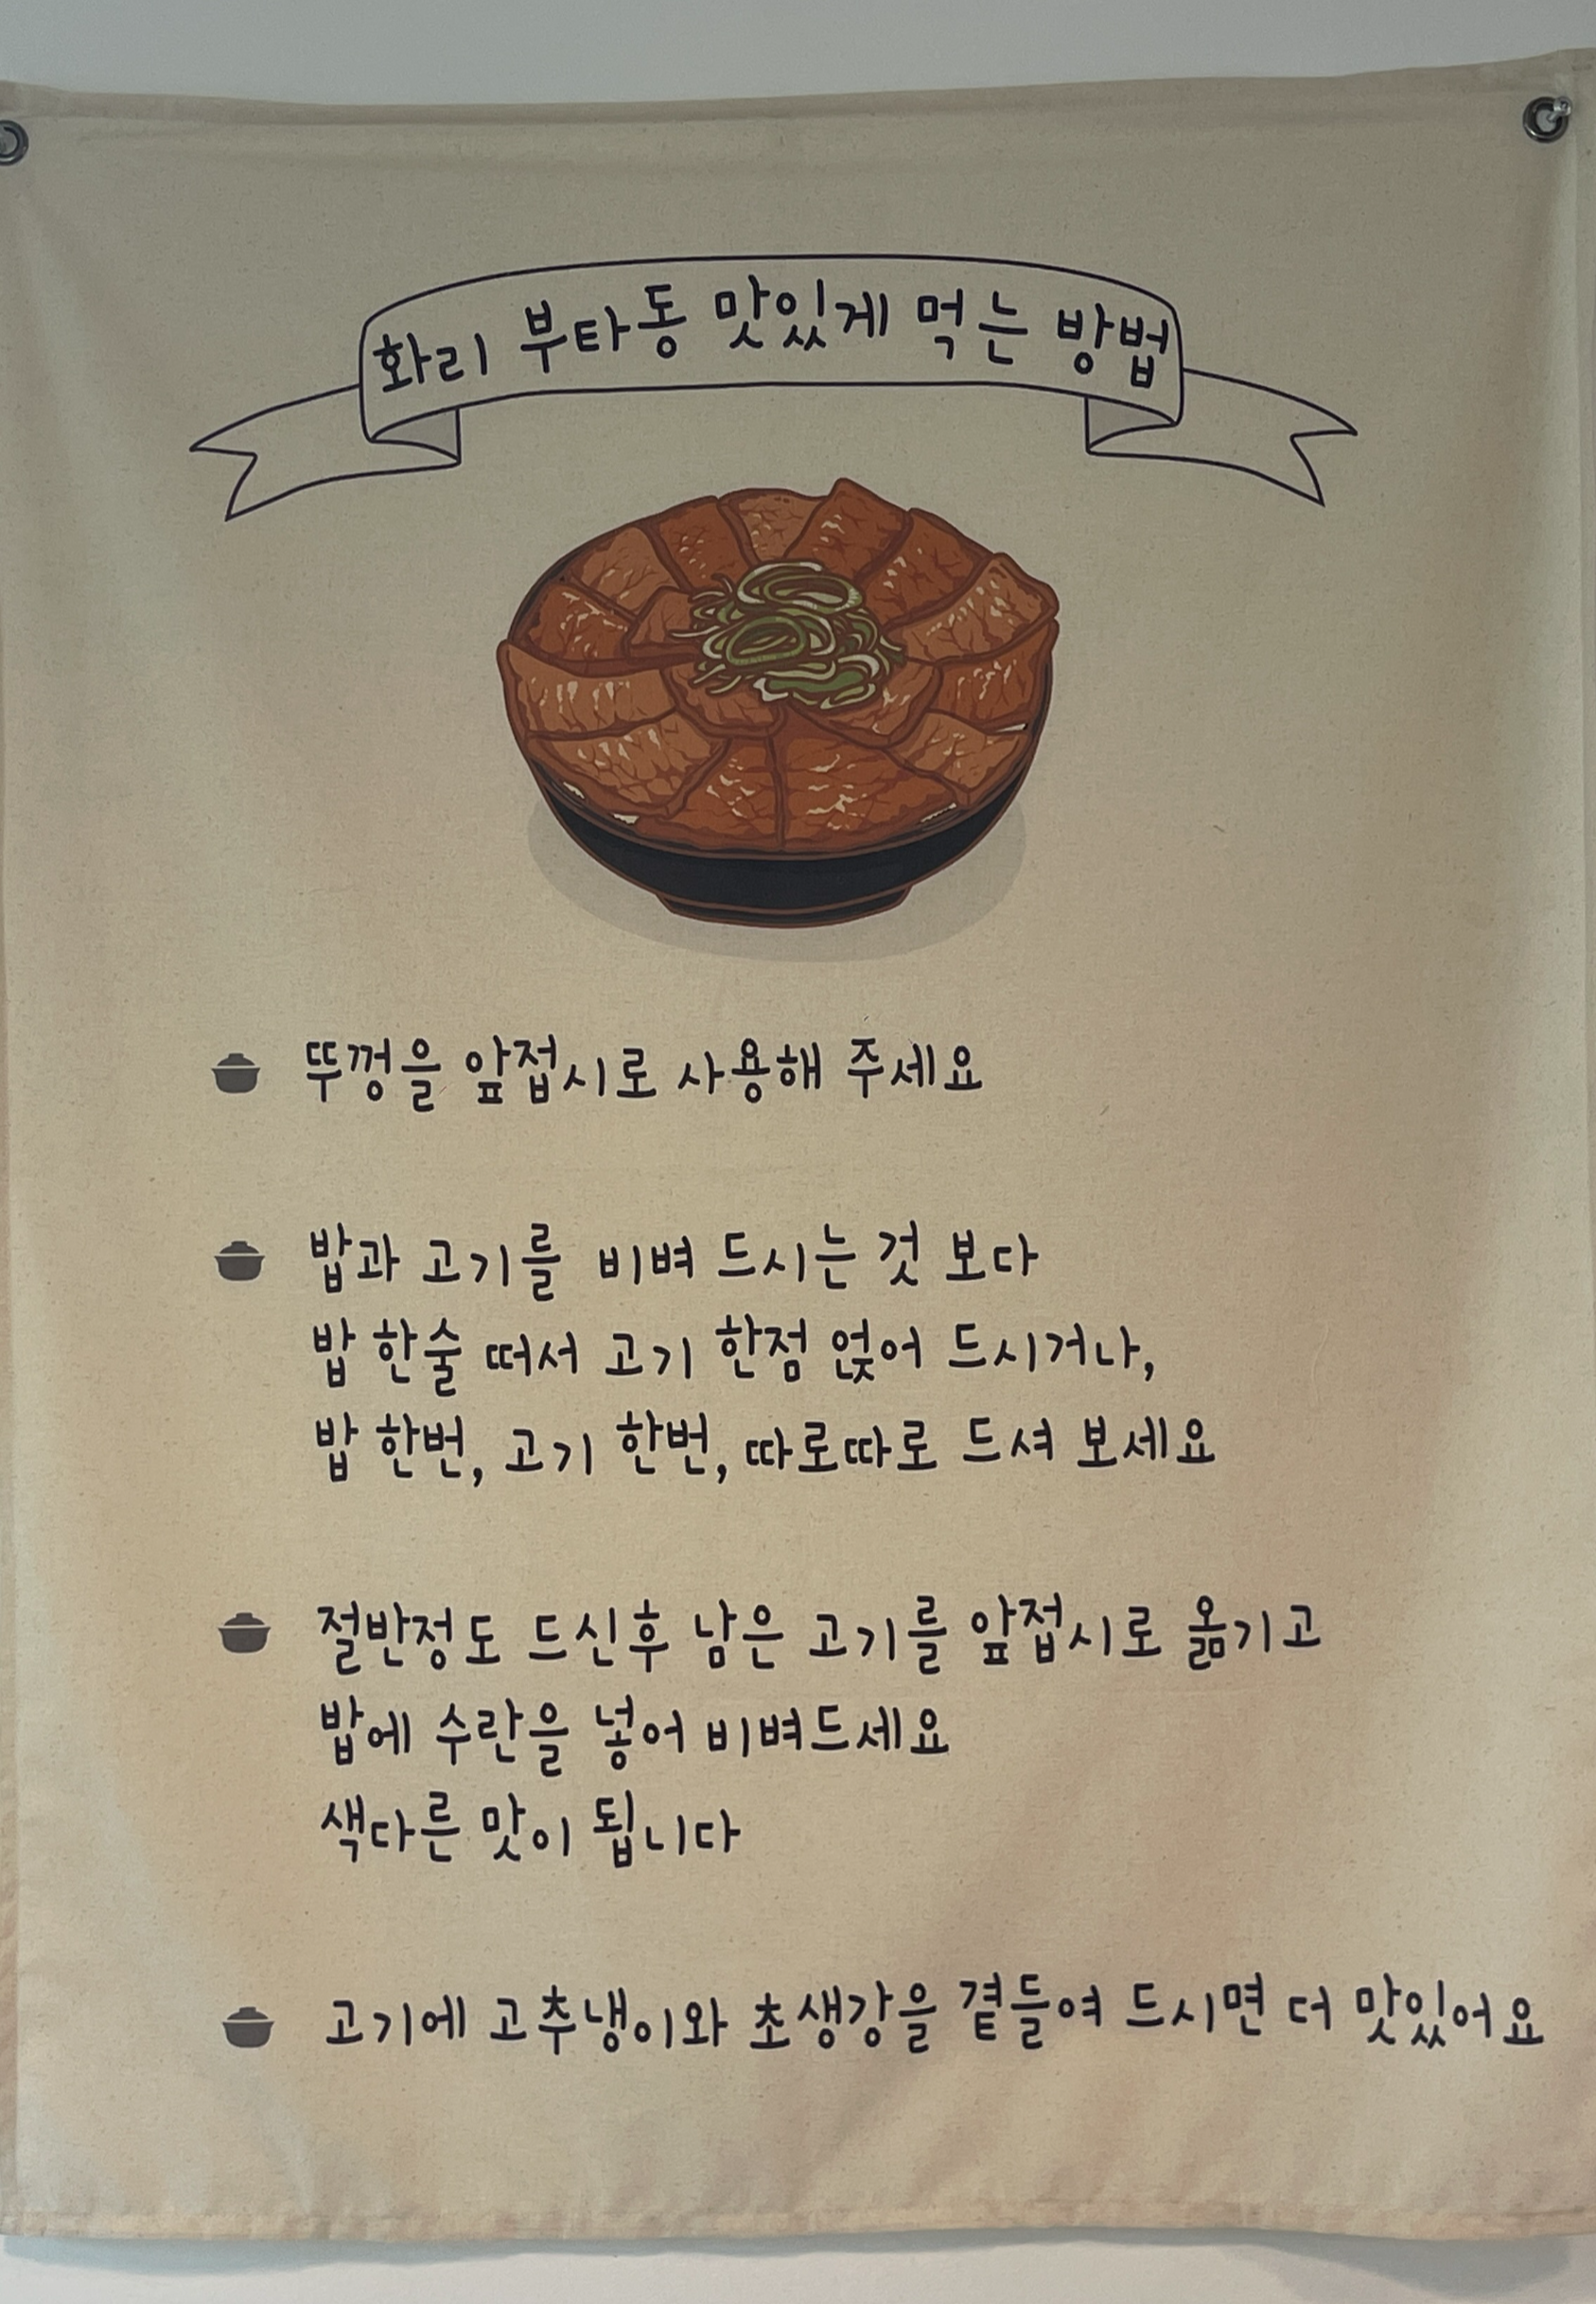 화리 부타동 맛있게 먹는 방법
뚜껑을 앞접시로 사용해 주세요
밥과 고기를 비벼 드시는 것 보다
밥 한술 떠서 고기 한점 얹어 드시거나,
밥 한번, 고기 한번, 따로따로 드셔 보세요
절반정도 드신후 남은 고기를 앞접시로 옮기고
밥에 수란을 넣어 비벼드세요
색다른 맛이 됩니다
고기에 고추냉이와 초생강을 곁들여 드시면 더 맛있어요